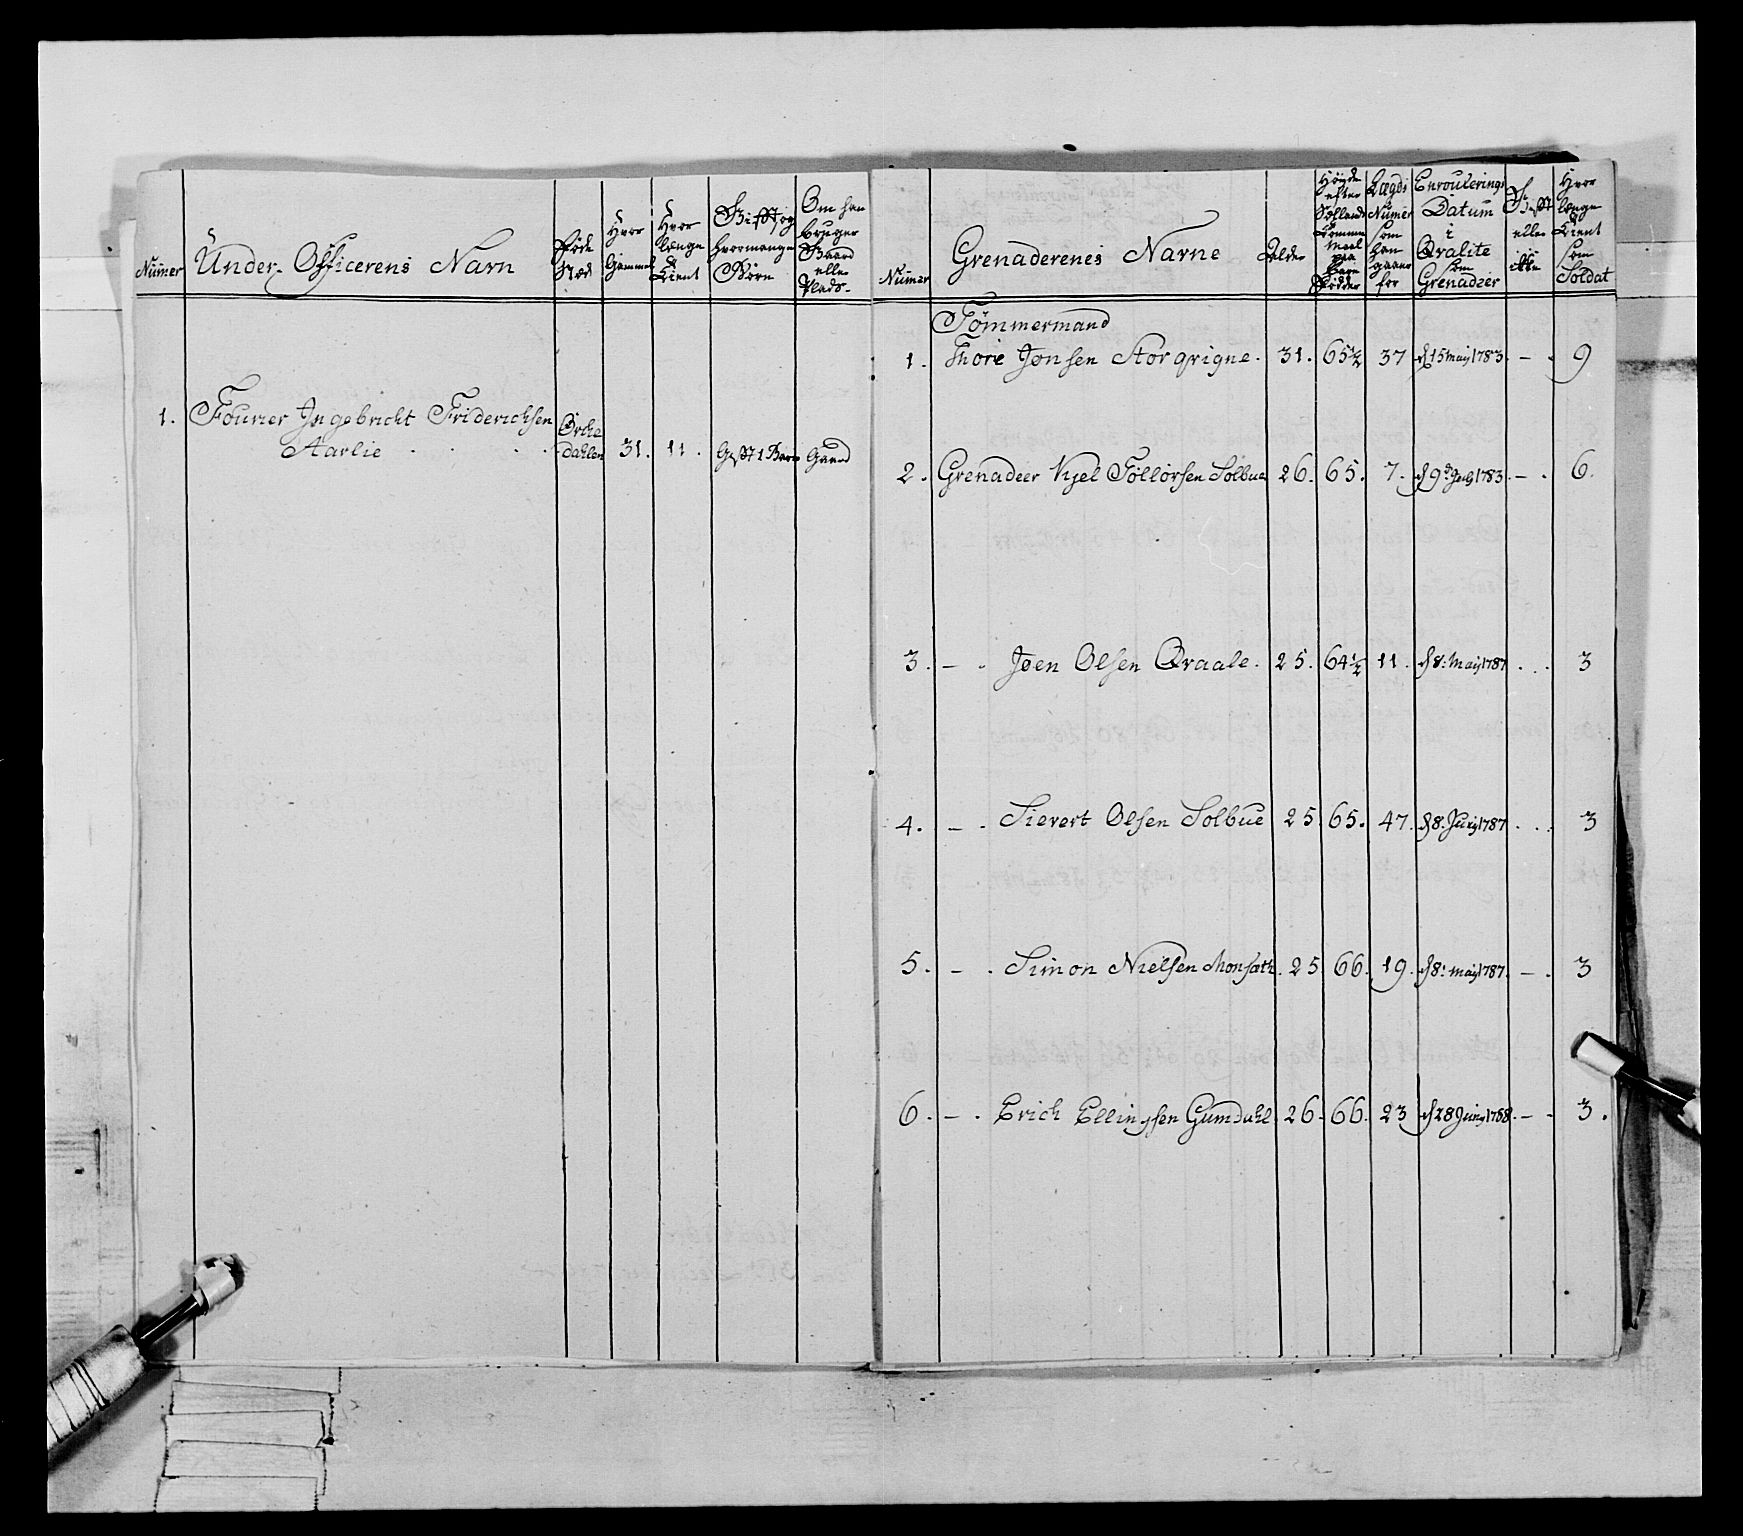 Numer
Under-Officerens Navn
Føde Sted
Hvor Gammel
Hvor længe Tient
Gifft og hvormange Børn
Om han bruger Gaard eller Plads
1. Fourier Ingebricht Friderichsen
Aarlie Orchedahlen 31. 11. Gifft 1 Barn Gaard
Numer
Grenaderenes Navne
Alder
Høyde efter Siællands Tomme Maal paa bare Fødder
Lægds Numer som han gaaer for
Enroulerings Datum i Qvalite som Grenadeer
Gifft eller ikke
Hvor længe Tient som Soldat
Tømmermand
1. Thore Jonsen Storqvigne. 31. 65½ 37 d 15 maij 1783. – . 9
2. Grenadeer Kjel Tollorsen Solbue 26. 65. 7. 1783. – . 6.
3. – . Joen Olsen Qvaale. 25. 64½ 11. d 8. Maij 1787 . . . 3
4. – . Sievert Olsen Solbue 25. 65. 47. d 8. 1787 . . . 3
5. – . Simon Nielsen Monsæth. 25 66. 19. d 8. maij 1787. – . 3
6. – . Erich Ellingsen Gumdahl 26. 66. 23 d 28 Junij 1788. – . 3.